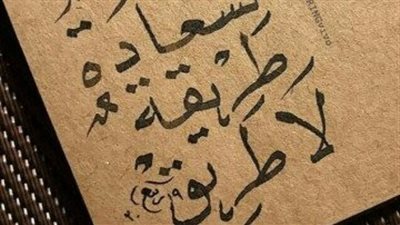 لسعادة
طَريقة
لَا طَريق